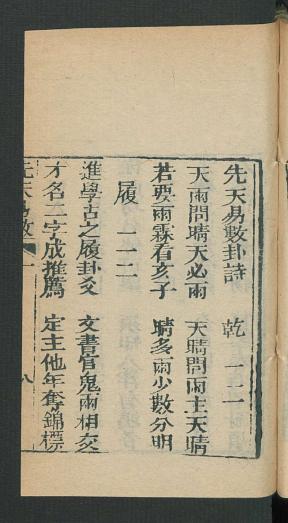 先天易數卦詩　乾　一二一
天雨問晴天必雨　天晴問雨主天晴
若要雨霖看亥子　晴多雨少數分明
履　一一二
進學古之履卦爻　文書官鬼兩相交
才名二字成推薦　定主他年奪錦標
先天易數　一　八